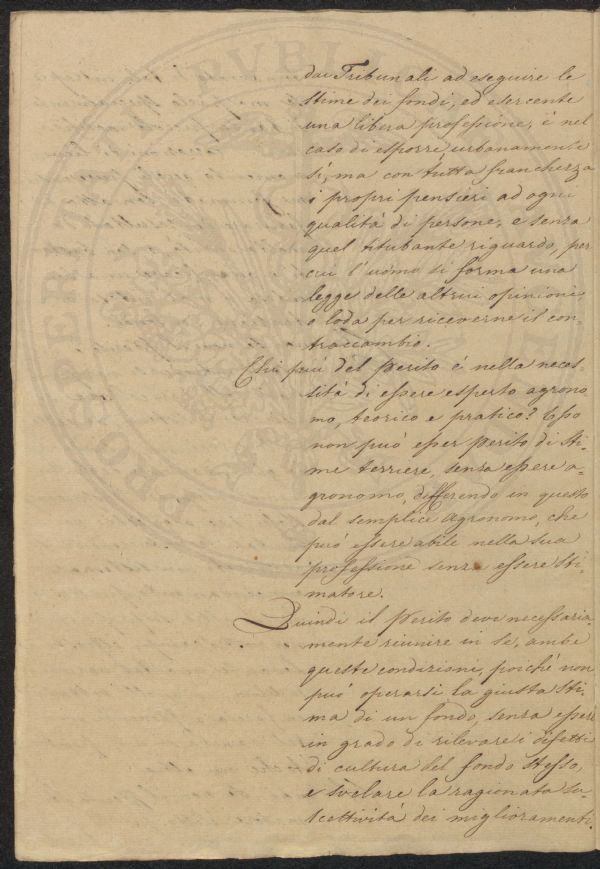 dai Tribunali ad eseguire le
stime dei fondi, ed esercente
una libera professione, è nel
caso di esporre urbanamente
sì, ma con tutta franchezza
i propri pensieri ad ogni
qualità di persone, e senza
quel titubante riguardo, per
cui l'uomo si forma una
legge delle altrui opinioni,
o loda per riceverne il con-
traccambio.
Chi più del Perito è nella neces-
sità di essere esperto agrono
mo, teorico e pratico? Esso
non può esser Perito di sti-
me terriere, senza essere a-
gronomo, differendo in questo
dal semplice agronomo, che
può essere abile nella sua
professione senza essere sti-
matore.
Quindi il Perito deve necessaria-
mente riunire in se, ambe
queste condizioni, poichè non
può operarsi la giusta sti-
ma di un fondo, senza esser
in grado di rilevare i difetti
di cultura del fondo stesso,
e svelare la ragionata su-
scettività dei miglioramenti.
PVBLIC
PROSPERITA